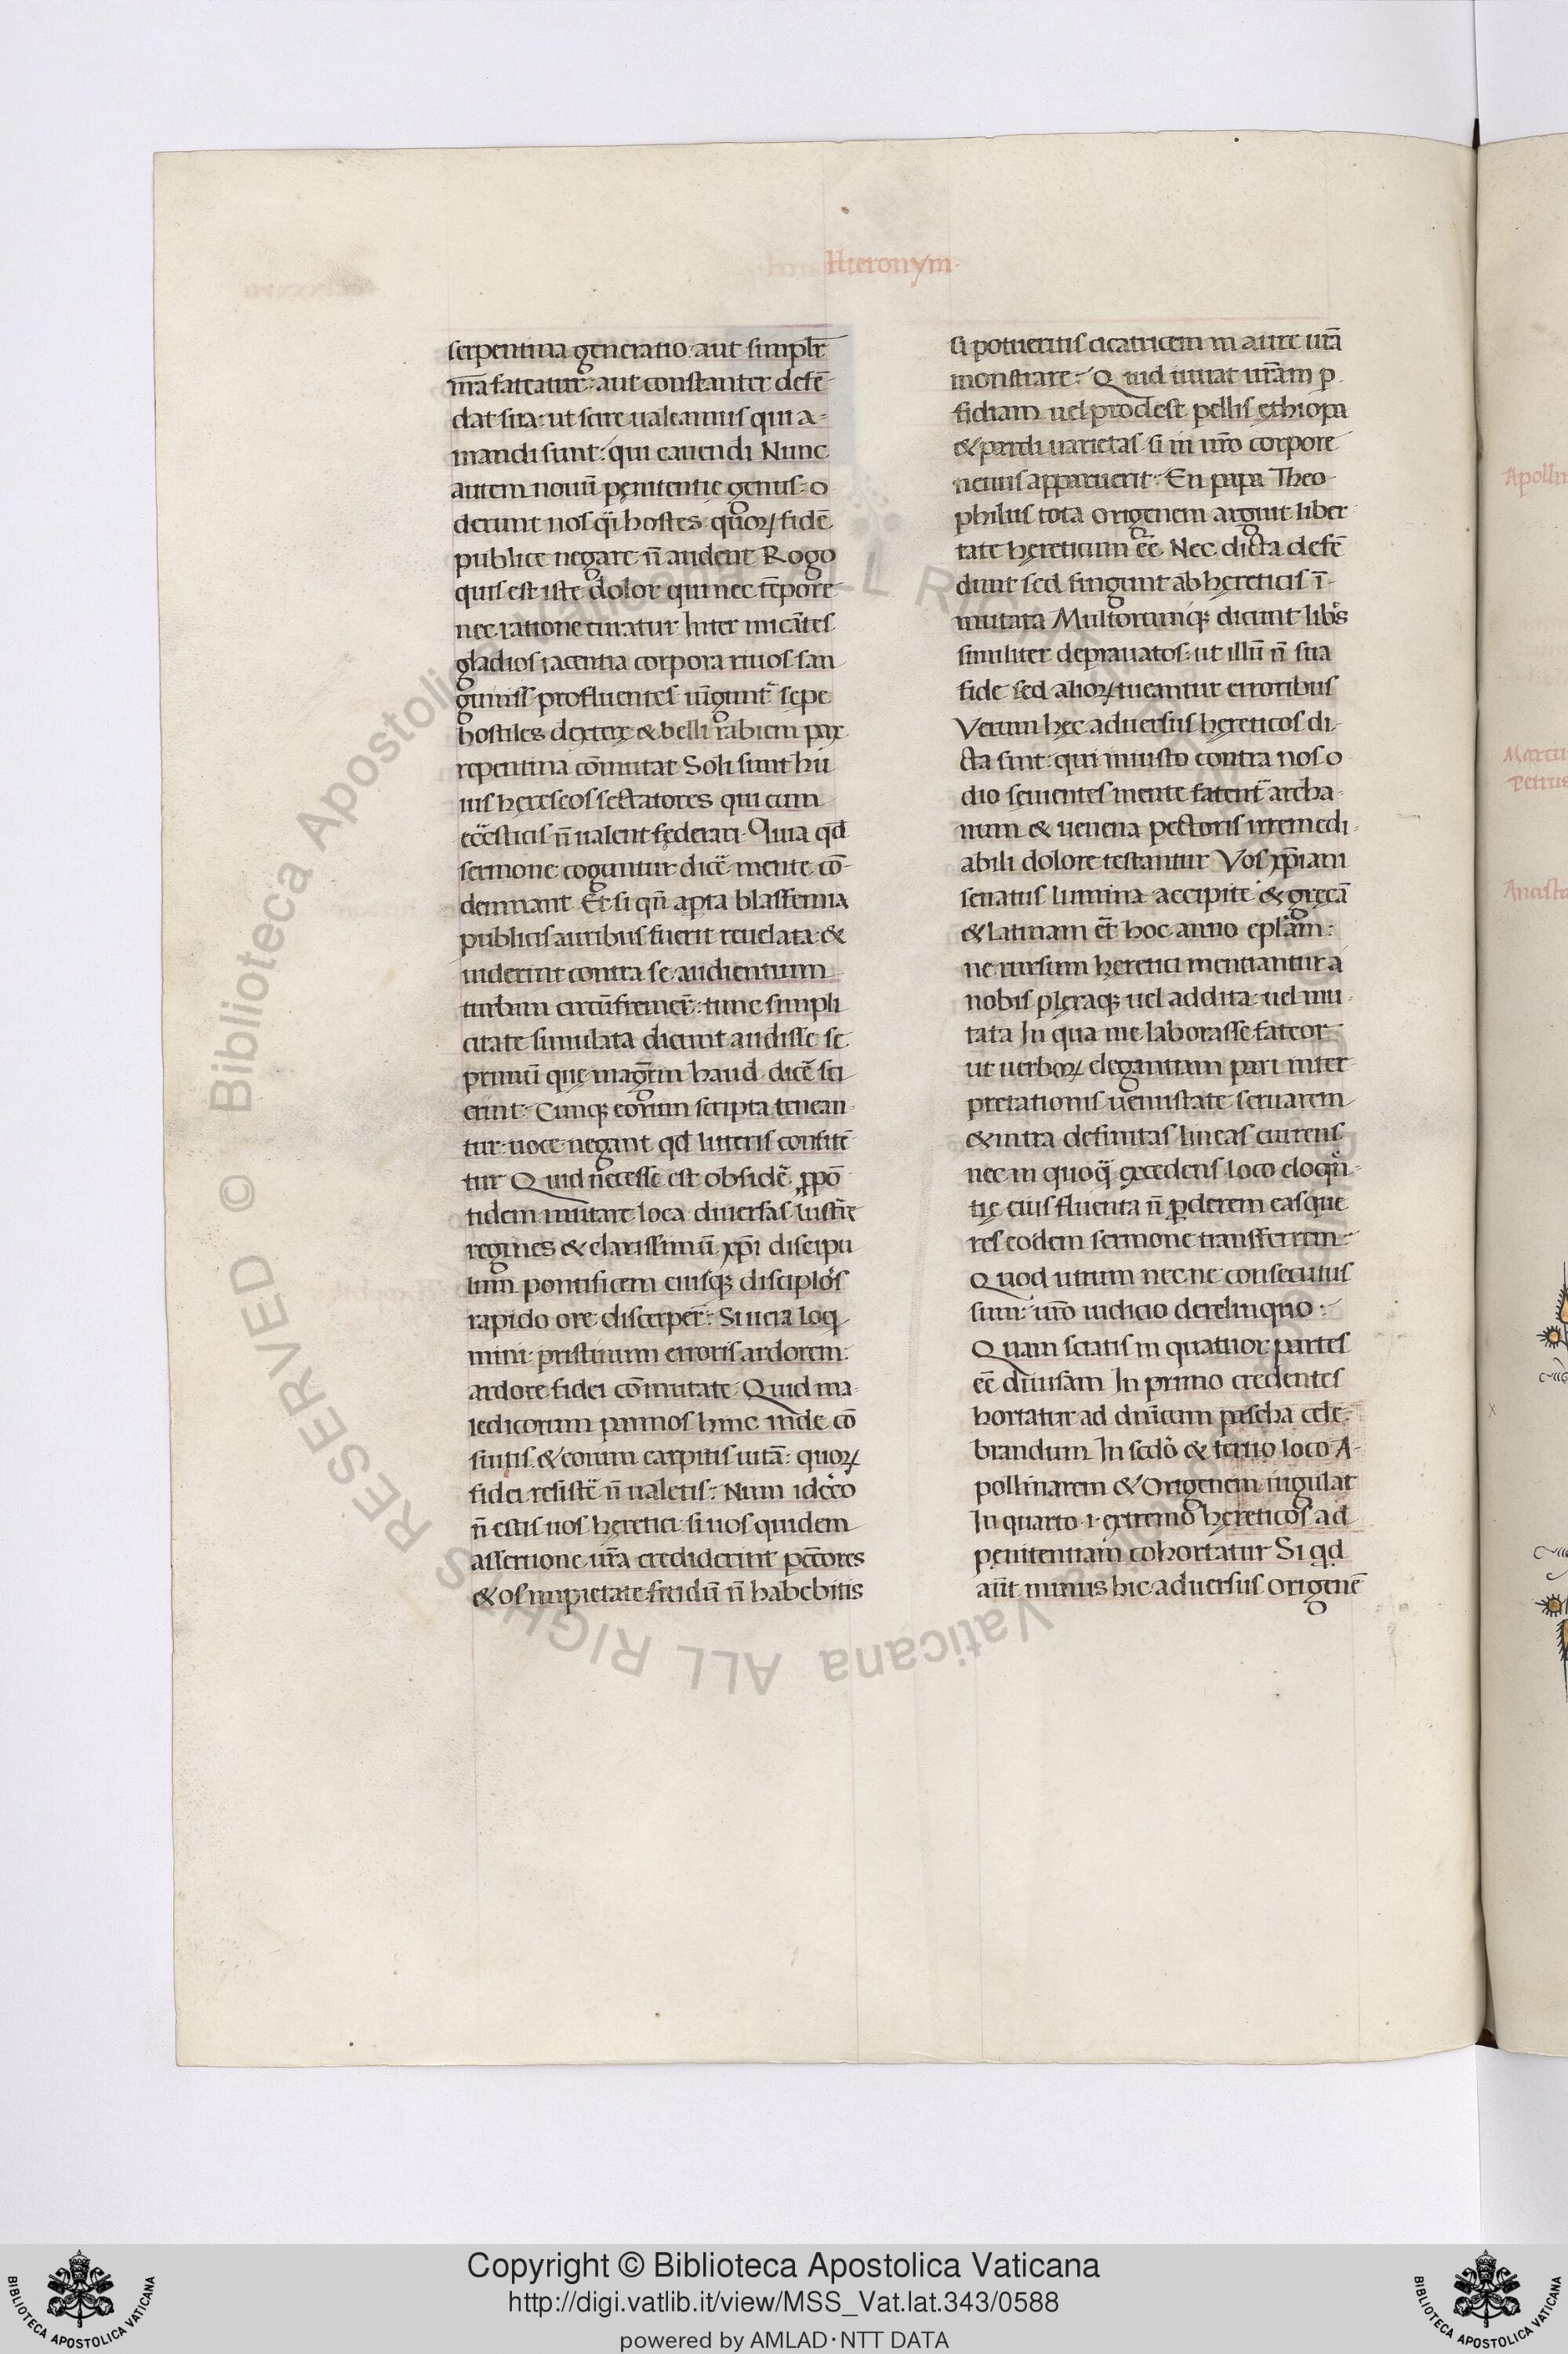 Hieronym·
serpentina generatio: aut simplr̄
nr̄a fateatur: aut constanter defē-
dat sua: ut scire ualeamus qui a-
mandi sunt: qui cauendi Nunc
autem nouū pęnitentię genus: o
derunt nos qͥ hostes quoꝝ fidē
publice negare n̄ audent Rogo
quis est iste dolor qui nec tēpore
nec ratione curatur Inter micātes
gladios iacentia corpora riuos san
guinis profluentes iūgunt᷑ sępe
hostiles dexterę & belli rabiem pax
repentina cōmutat Soli sunt hu
ius hęreseos sectatores qui cum
ecc̄lesticis n̄ ualent fęderari Quia qd̄
sermone coguntur dicē mente cō-
demnant Et si qn̄ aperta blasfemia
publicis auribus fuerit reuelata &
uiderint contra se audientium
turbam circūfremer̄: tunc simpli
citate simulata dicunt audisse se
primū quę magr̄m haud dicē sci
erint Cunqꝫ eorum scripta tenean
tur: uoce negant qd̄ litteris confitē
tur Quid necesse est obsidē ꝓpō
tidem mutare loca diuersas lustr̄e
regiones & clarissimū xp̄i discipu
lum pontificem eiusqꝫ disciplo᷑s
rapido ore discerper̄: Si uera loqͥ
mini: pristinum erroris ardorem
ardore fidei cōmutate Quid ma
ledicorum pannos hinc inde cō
suitis & eorum carpitis uitā: quoꝝ
fidei resistē n̄ ualetis: Num idcͥco
n̄ estis uos hęretici si uos quidem
assertione nr̄a crediderint pcc̄tores
& os impietate fęidū n̄ habebitis
si potueritis cicatricem in aure nr̄a
monstrare: Quid iuuat ur̄am p
fidiam uel prodest pellis ęthiopa
& pardi uarietas si in nr̄o corpore
neuus apparuerit: En papa Theo
philus tota origenem arguit liber
tate hęreticum ēe Nec dicta defē
dunt sed fingunt ab hęreticis ī-
mutata Multorumqꝫ dicunt libͦs
similiter deprauatos: ut illū n̄ sua
fide sed alioꝝ tueantur erroribus
Verum hęc aduersus hęreticos di-
cta sint: qui iniusto contra nos o
dio seuientes mente faten᷑t archa-
num & uenena pectoris irremedi-
abili dolore testantur Vos xp̄iani
senatus lumina accipite & gręcā
& latinam ēt hoc anno epl̄am:
ne rursum hęretici mentiantur a
nobis pleraqꝫ uel addita: uel mu
tata In qua me laborasse fateor
ut uerboꝝ elegantiam pari inter
pretationis uenustate seruarem
& intra definitas lineas currens
nec in quoqͣ excedens loco eloqn̄
tię eius fluenta n̄ ꝑderem easque
res eodem sermone transferrem:
Quod utrum necne consecutus
sum: uro iudicio derelinquo:
Quam sciatis in quatuor partes
ēe diuisam In primo credentes
hortatur ad dn̄icum pascha cele
brandum In scdo᷑ & tertio loco A-
pollinarem & Origenem iugulat
In quarto ·i· extremo hęreticos ad
pęnitentiam cohortatur Si qͥd
aūt minus hic aduersus origenē
Marcu
Petrus
Anasta
© Biblioteca Apostolica Vaticana ALL RIGHTS RESERVED
Copyright © Biblioteca Apostolica Vaticana
http://digi.vatlib.it/view/MSS_Vat.lat.343/0588
powered by AMLAD·NTT DATA
BIBLIOTECA APOSTOLICA VATICANA
BIBLIOTECA APOSTOLICA VATICANA